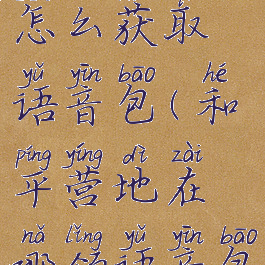 怎么获取
yǔ yīn bāo hé
语音包(和
píng yíng dì zài
平营地在
nǎ lǐng yǔ yīn bāo
哪领语音包